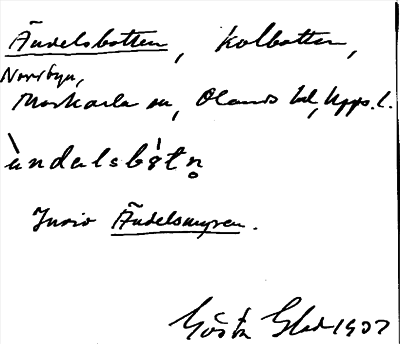 Ändelsbotten, Kolbotten,
Norrbyn,
Morkarla sn, Olands hd, Upps. l.
àndalsbòtn̥
Invio Ändelsmyren.
Gösta Glad 1937